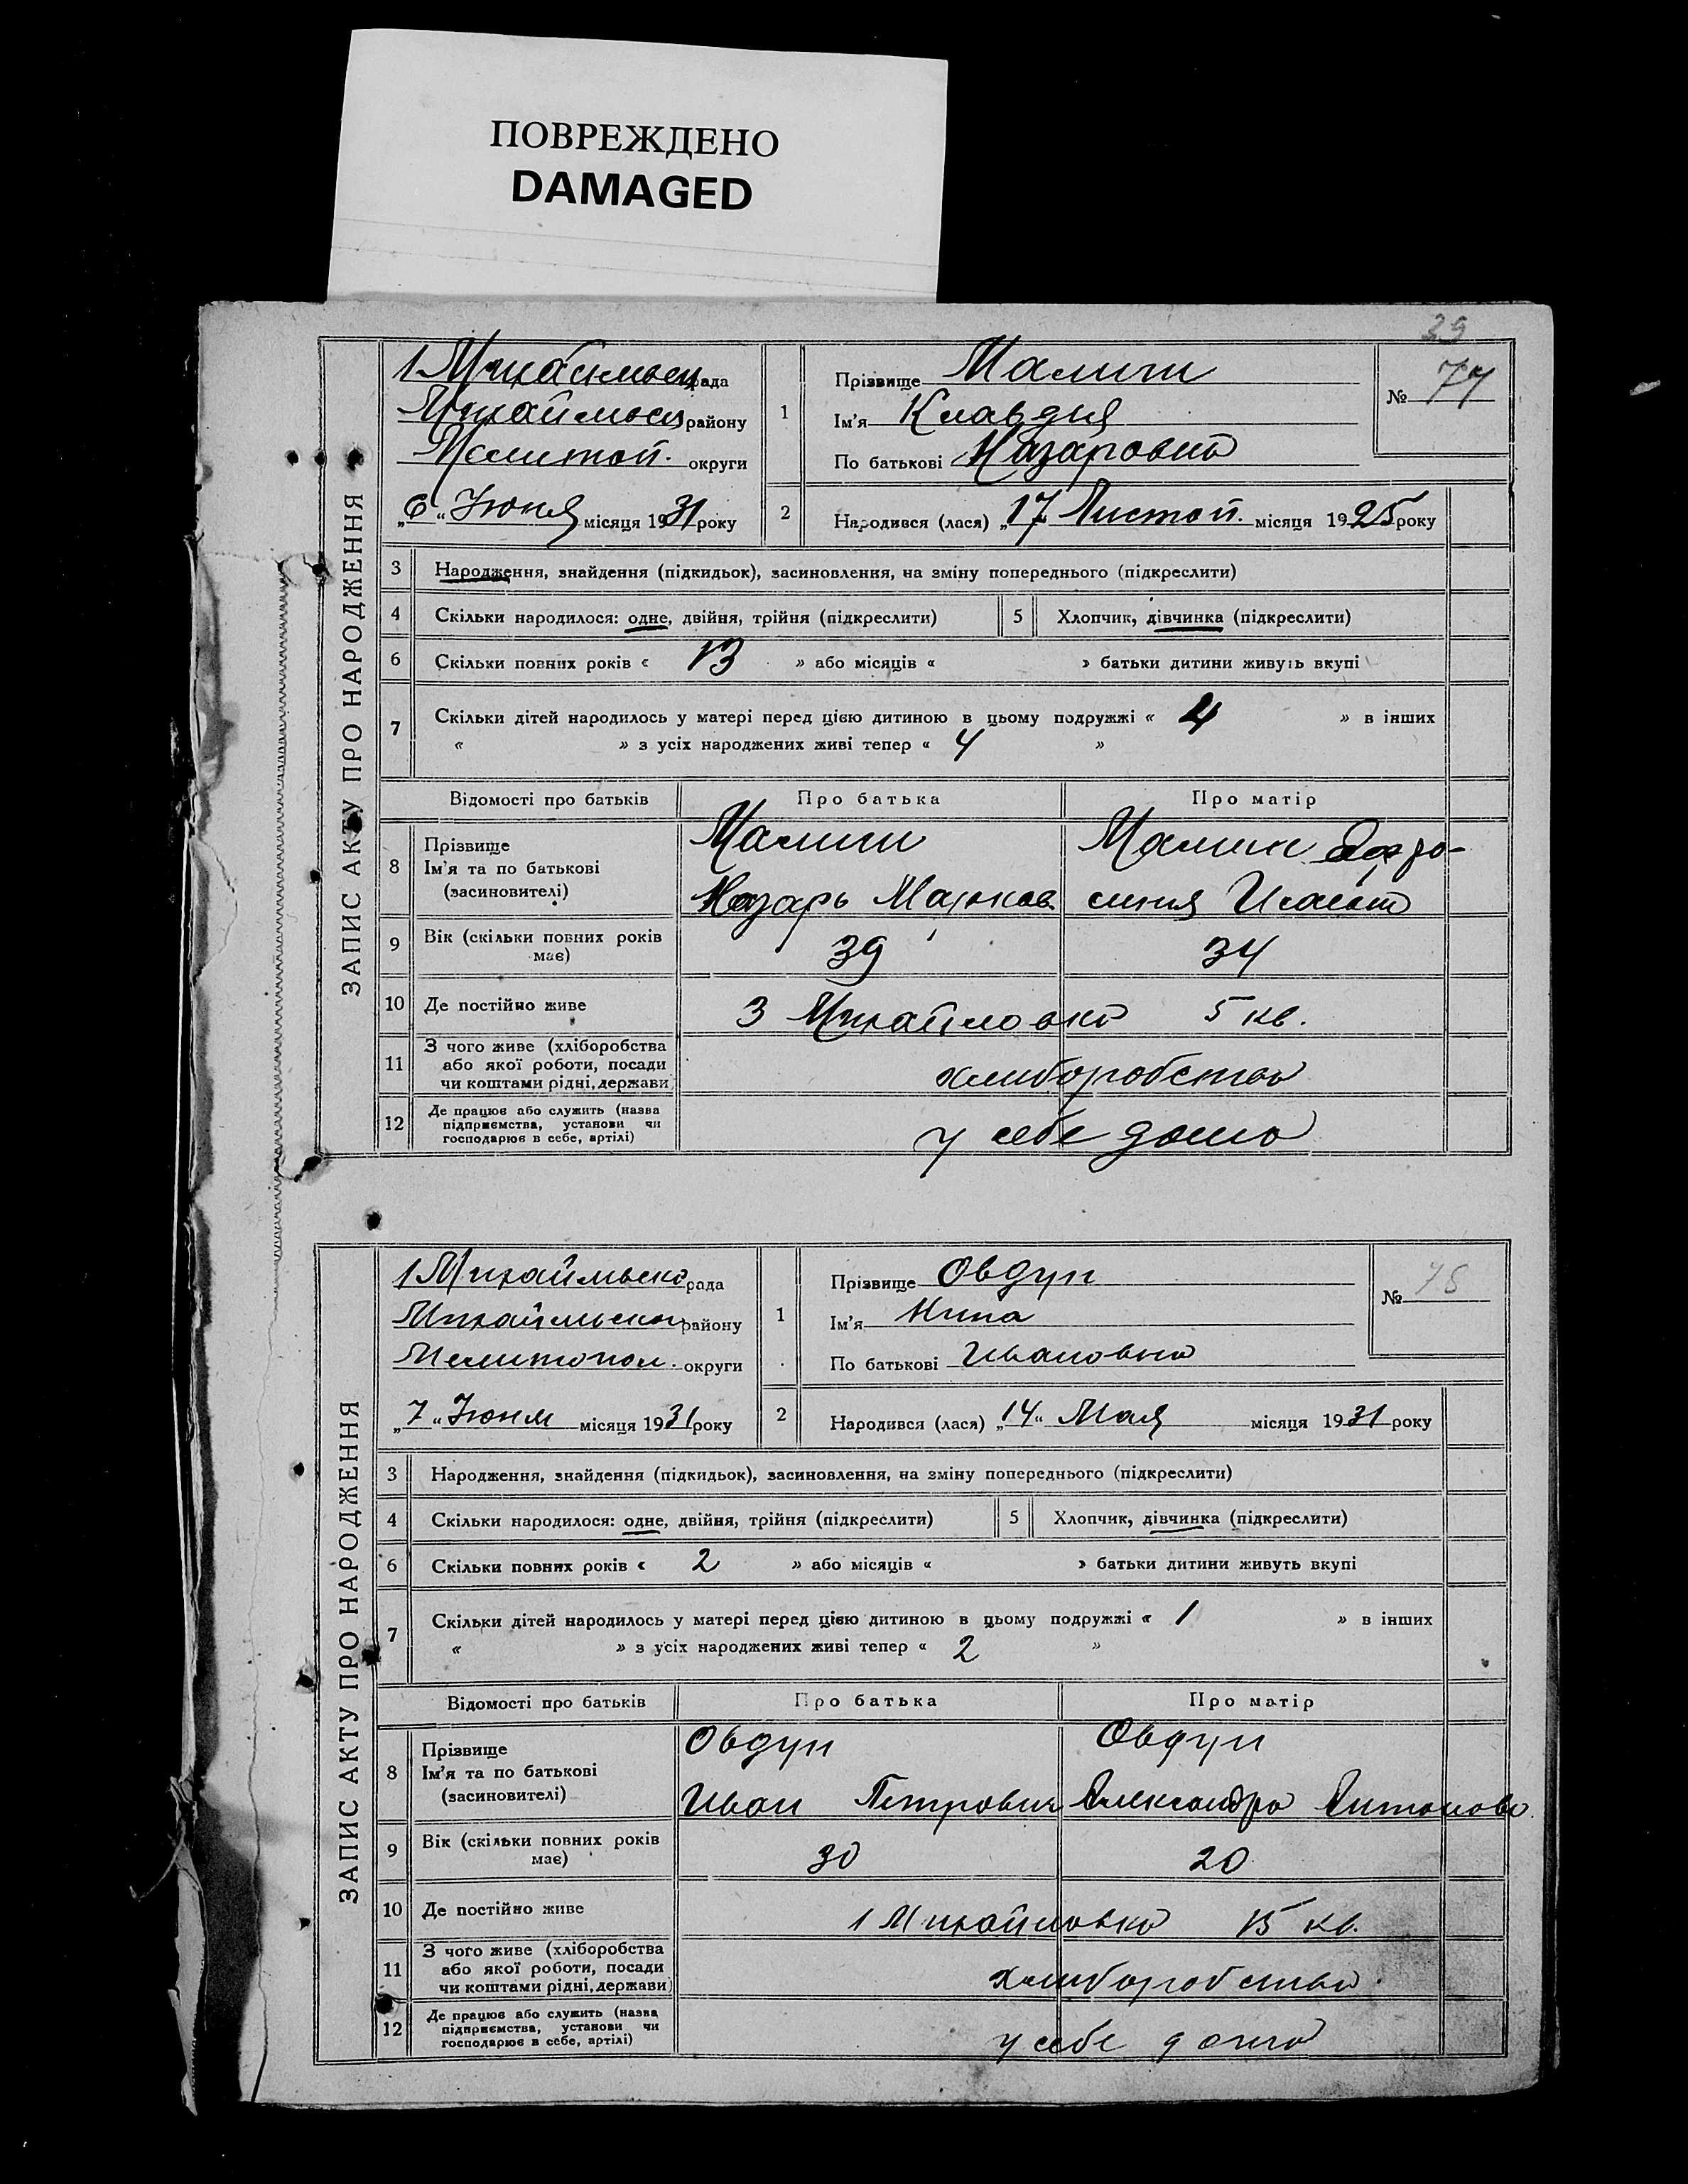 ПОВРЕЖДЕНО
DAMAGED
39
ЗАПИС АКТУ ПРО НАРОДЖЕННЯ
1 рада
району
Мелитоп. округи
„6“ Июня місяця 1931 року
1
Прізвище
Ім'я Клавдия
По батькові Назаровна
№ 77
2
Народився (лася) „17 Листоп. місяця 1925 року
3 Народження, знайдення (підкидьок), засиновлення, на зміну попереднього (підкреслити)
4 Скільки народилося: одне, двійня, трійня (підкреслити) 5 Хлопчик, дівчинка (підкреслити)
6 Скільки повних років « 13 » або місяців « » батьки дитини живуть вкупі
7 Скільки дітей народилось у матері перед цією дитиною в цьому подружжі « 4 » в інших
« » з усіх народжених живі тепер « 4 »
Відомості про батьків Про батька Про матір
8 Прізвище
Ім'я та по батькові
(засновителі)
Назарь Марков
9 Вік (скільки повних років має) 39 34
10 Де постійно живе 3 Михайловка 5 кв.
11 З чого живе (хліборобства
або якої роботи, посади
чи коштами рідні, держави)
хлиборобство
12 Де працює або служить (назва
підприємства, установи чи
господарює в себе, артілі)
у себе дома
ЗАПИС АКТУ ПРО НАРОДЖЕННЯ
1 Михайльско рада
району
Мелитопол. округи
„7“ Июня місяця 1931 року
1
Прізвище Овдун
Ім'я Нина
По батькові Ивановна
№ 78
2
Народився (лася) „14“ Мая місяця 1931 року
3 Народження, знайдення (підкидьок), засиновлення, на зміну попереднього (підкреслити)
4 Скільки народилося: одне, двійня, трійня (підкреслити) 5 Хлопчик, дівчинка (підкреслити)
6 Скільки повних років « 2 » або місяців « » батьки дитини живуть вкупі
7 Скільки дітей народилось у матері перед цією дитиною в цьому подружжі « 1 » в інших
« » з усіх народжених живі тепер « 2 »
Відомості про батьків Про батька Про матір
8 Прізвище
Ім'я та по батькові
(засиновителі)
Овдун Овдун
Иван Петрович Александра Антонова
9 Вік (скільки повних років має) 30 20
10 Де постійно живе 1 Михайловка 15 кв.
11 З чого живе (хліборобства
або якої роботи, посади
чи коштами рідні, держави)
хлиборобство.
12 Де працює або служить (назва
підприємства, установи чи
господарює в себе, артілі)
у себе дома